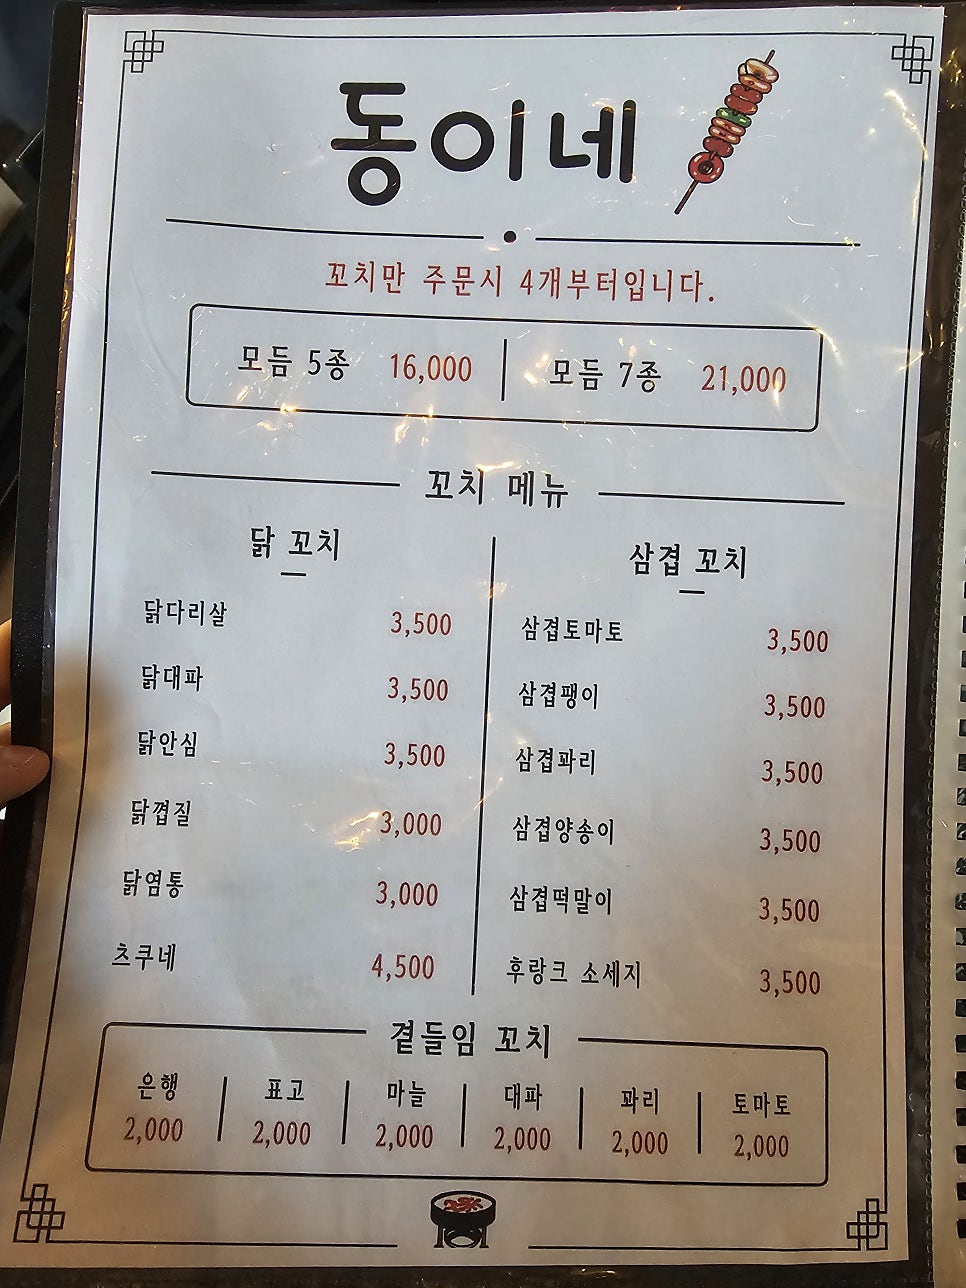 동이네
꼬치만 주문시 4개부터입니다.
모듬 5종 16,000 모듬 7종 21,000
꼬치 메뉴
닭 꼬치
닭다리살 3,500
닭대파 3,500
닭안심 3,500
닭껍질 3,000
닭염통 3,000
츠쿠네 4,500
삼겹 꼬치
삼겹토마토 3,500
삼겹팽이 3,500
삼겹꽈리 3,500
삼겹양송이 3,500
삼겹떡말이 3,500
후랑크 소세지 3,500
곁들임 꼬치
은행 표고 마늘 대파 꽈리 토마토
2,000 2,000 2,000 2,000 2,000 2,000